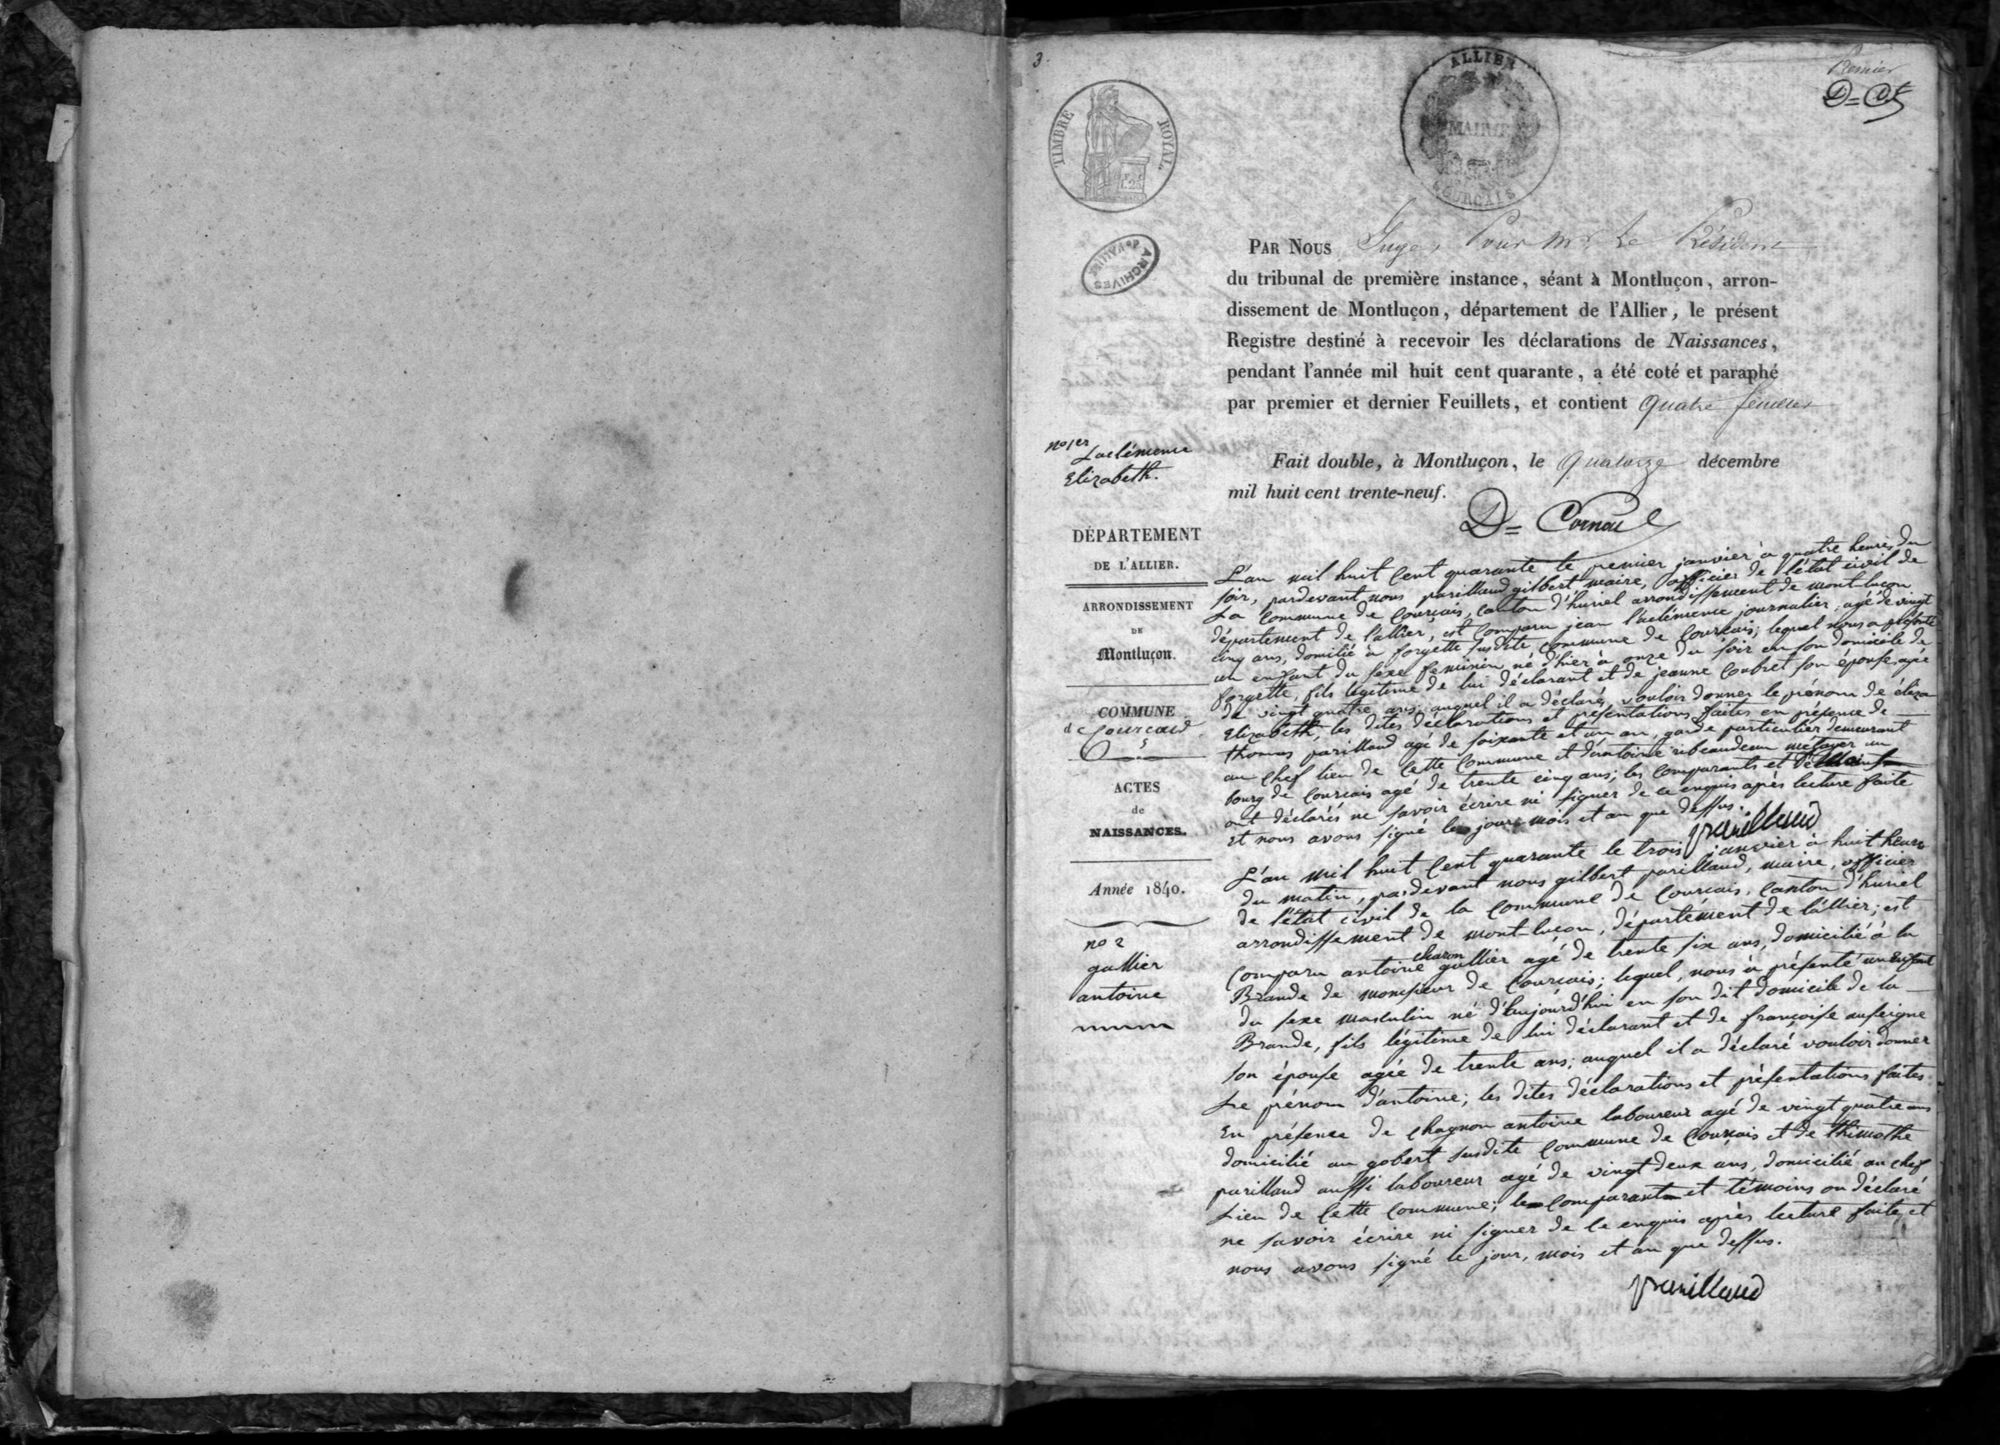 3.
Premier
TIMBRE ROYAL
ALLIER
MAIRIE
COURÇAIS
ARCHIVES
PAR NOUS Juge, Pour Mr Le Président
du tribunal de première instance, séant à Montluçon, arron-
dissement de Montluçon, département de l'Allier, le présent
Registre destiné à recevoir les déclarations de Naissances,
pendant l'année mil huit cent quarante, a été coté et paraphé
par premier et dernier Feuillets, et contient quatre feuilles
Fait double, à Montluçon, le Quatorze décembre
mil huit cent trente-neuf.
no 1er
Laclémence
Elizabeth.
DÉPARTEMENT
DE L'ALLIER.
ARRONDISSEMENT
DE
Montluçon.
COMMUNE
de Courcais
ACTES
de
NAISSANCES.
Année 1840.
no 2
gallier
antoine
L'an mil huit cent quarante le premier janvier à quatre heures du
soir, pardevant nous parilland gilbert maire, officier de l'état civil de
La commune de Courcais, canton d'huriel arrondissement de mont-luçon
département de l'allier, est comparu jean laclémence journalier, agé de vingt
cinq ans, domilié à forgette susdite commune de Courcais; lequel nous a présenté
un enfant du sexe feminin né d'hier à onze du soir en son domicile de
forgette, fils légitime de lui déclarant et de jeanne Coubret son épouse, agé
de vingt quatre ans; auquel il a déclaré vouloir donner le prénom de éliza
Elizabeth, les dites déclarations et présentations faites en présence de
thomas parilland agé de soixante et un an, garde particulier demeurant
au chef lieu de cette commune et d'antoine ribeaudeau metayer au
bourg de Courcais agé de trente cinq ans; les comparants et
ont déclarés ne savoir écrire ni signer de ce enquis après lecture faite
et nous avons signé les jour mois et an que dessus.
parilland
L'an mil huit Cent quarante le trois janvier à huit heures
du matin, pardevant nous gilbert parilland, maire, officier
de l'état civil de la commune de Courcais, canton d'huriel
arrondissement de mont-luçon, département de l'allier; est
comparu antoine charon gallier agé de trente six ans, domicilié à la
Brande de monsieur de Courcais; lequel, nous à présenté un enfant
du sexe masculin né d'aujourd'hui en son dit domicile de la
Brande, fils légitime de lui déclarant et de françoise auseigne
son épouse agée de trente ans; auquel il a déclaré vouloir donner
Le prénom d'antoine; les dites déclarations et présentations faites
En présence de chagnon antoine laboureur agé de vingt quatre ans
domicilié au gobert susdite commune de Courcais et de thimothé
parilland aussi laboureur agé de vingt deux ans, domicilié au chef
Lieu de cette commune; les comparants et témoins on déclaré
ne savoir écrire ni signer de ce enquis après lecture faite, et
nous avons signé le jour, mois et an que dessus.
parilland